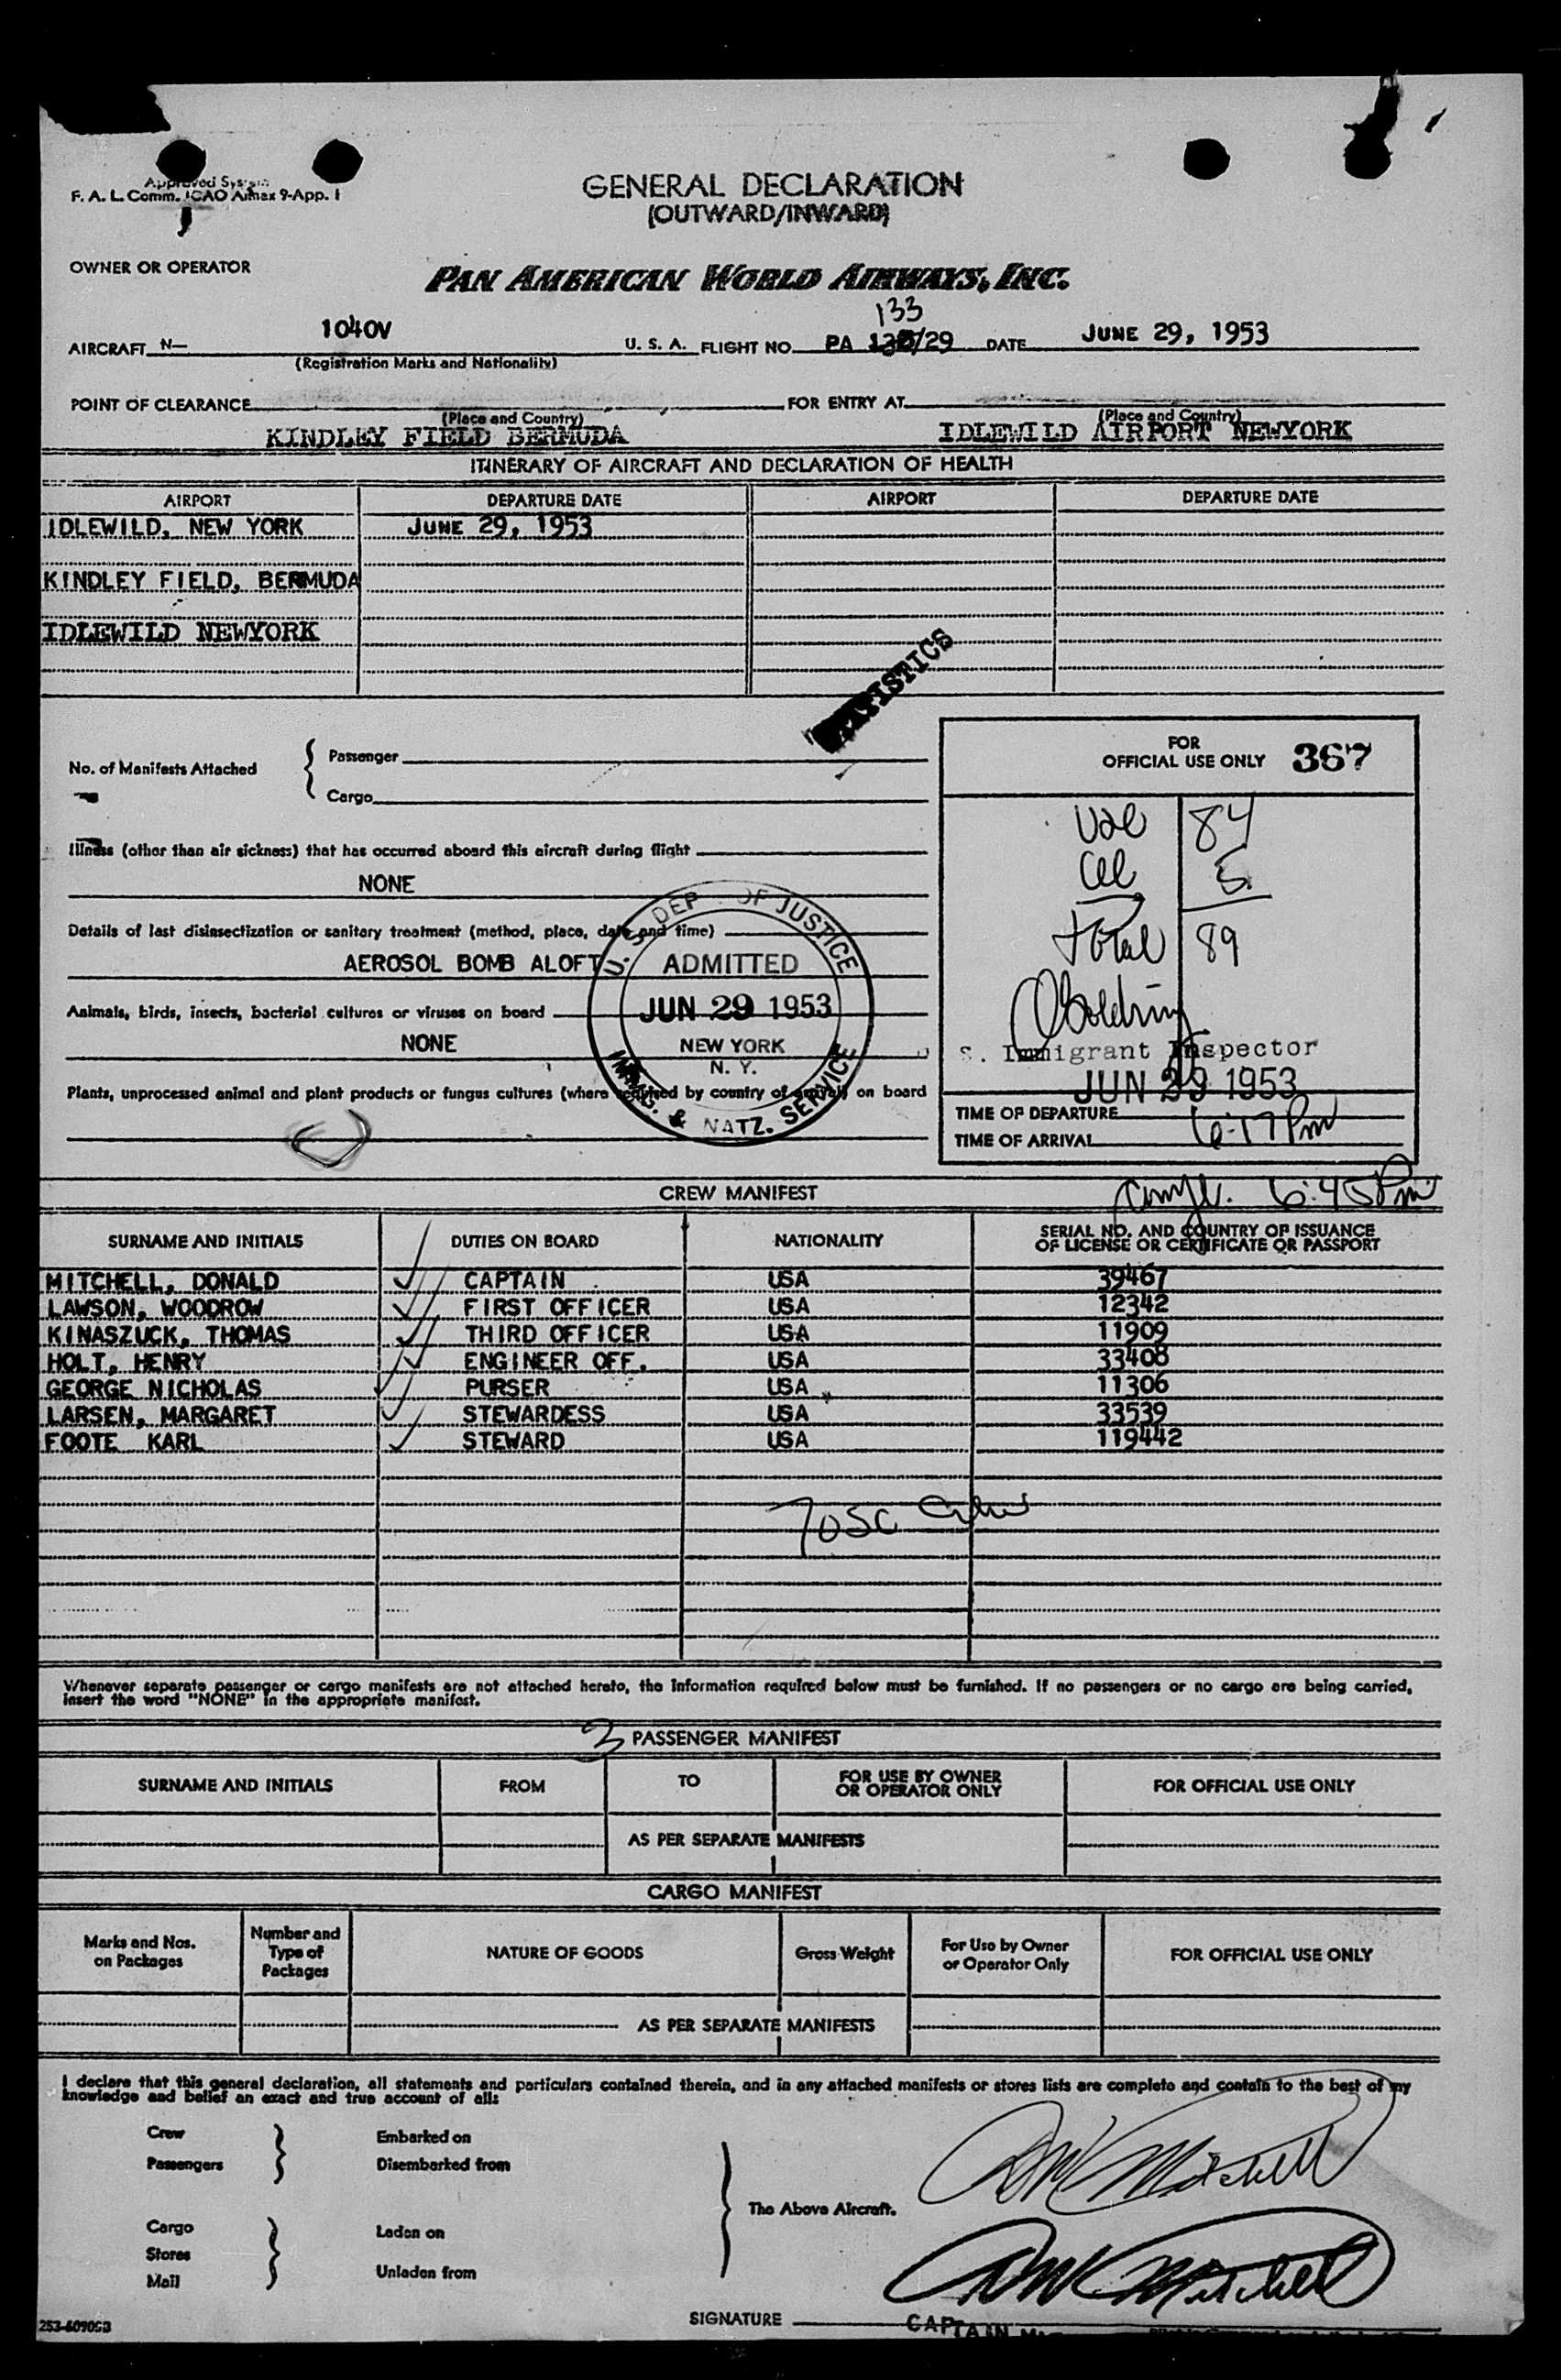 Approved System
F. A. L. Comm. ICAO Annex 9-App. I
GENERAL DECLARATION
(OUTWARD/INWARD)
OWNER OR OPERATOR
PAN AMERICAN WORLD AIRWAYS, INC.
133
AIRCRAFT N— 1040V U. S. A. FLIGHT NO. PA /29 DATE JUNE 29, 1953
(Registration Marks and Nationality)
POINT OF CLEARANCE FOR ENTRY AT
(Place and Country) (Place and Country)
KINDLEY FIELD BERMUDA IDLEWILD AIRPORT NEWYORK
ITINERARY OF AIRCRAFT AND DECLARATION OF HEALTH
AIRPORT DEPARTURE DATE AIRPORT DEPARTURE DATE
IDLEWILD, NEW YORK JUNE 29, 1953
KINDLEY FIELD, BERMUDA
IDLEWILD NEWYORK
STATISTICS
No. of Manifests Attached
Passenger
Cargo
FOR
OFFICIAL USE ONLY 367
USC 84
5
total 89
S. Immigrant Inspector
JUN 29 1953
TIME OF DEPARTURE
TIME OF ARRIVAL 6:17 PM
Illness (other than air sickness) that has occurred aboard this aircraft during flight
NONE
Details of last disinsectization or sanitary treatment (method, place, date and time)
AEROSOL BOMB ALOFT
Animals, birds, insects, bacterial cultures or viruses on board
NONE
Plants, unprocessed animal and plant products or fungus cultures (where required by country of arrival) on board
U. S. DEP. OF JUSTICE
ADMITTED
JUN 29 1953
NEW YORK
N. Y.
IMMG. & NATZ. SERVICE
6:45 PM
CREW MANIFEST
SURNAME AND INITIALS DUTIES ON BOARD NATIONALITY SERIAL NO. AND COUNTRY OF ISSUANCE
OF LICENSE OR CERTIFICATE OR PASSPORT
MITCHELL, DONALD CAPTAIN USA 39467
LAWSON, WOODROW FIRST OFFICER USA 12342
KINASZUCK, THOMAS THIRD OFFICER USA 11909
HOLT, HENRY ENGINEER OFF. USA 33408
GEORGE NICHOLAS PURSER USA 11306
LARSEN, MARGARET STEWARDESS USA 33539
FOOTE KARL STEWARD USA 119442
7 USC
Whenever separate passenger or cargo manifests are not attached hereto, the information required below must be furnished. If no passengers or no cargo are being carried,
insert the word "NONE" in the appropriate manifest.
3 PASSENGER MANIFEST
SURNAME AND INITIALS FROM TO FOR USE BY OWNER
OR OPERATOR ONLY FOR OFFICIAL USE ONLY
AS PER SEPARATE MANIFESTS
CARGO MANIFEST
Marks and Nos.
on Packages Number and
Type of
Packages NATURE OF GOODS Gross Weight For Use by Owner
or Operator Only FOR OFFICIAL USE ONLY
AS PER SEPARATE MANIFESTS
I declare that this general declaration, all statements and particulars contained therein, and in any attached manifests or stores lists are complete and contain to the best of my
knowledge and belief an exact and true account of all:
Crew Embarked on
Passengers Disembarked from
The Above Aircraft.
Cargo Laden on
Stores
Mail Unladen from
Mitchell
Mitchell
SIGNATURE
CAPTAIN